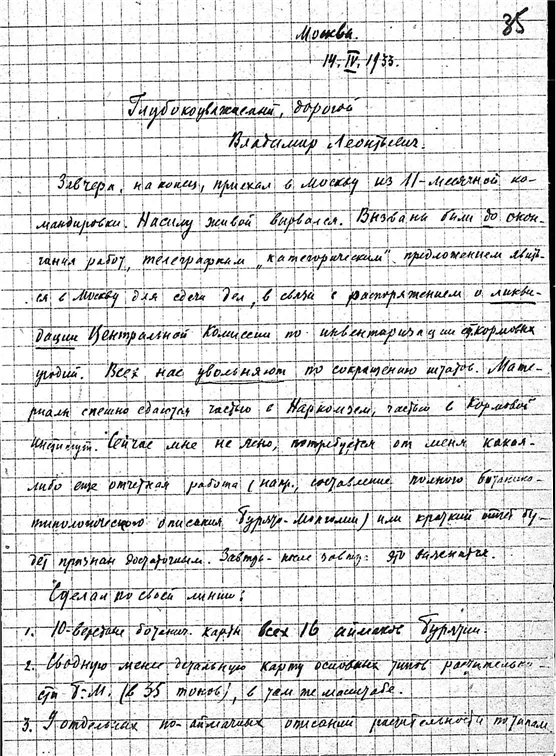 35
Москва.
14.IV.1933.
Глубокоуважаемый, дорогой
Владимир Леонтьевич.
Завчера, наконец, приехал в Москву из 11-месячной ко-
мандировки. Насилу живой вырвался. Вызваны были до окон-
чания работ, телеграфным „категорическим“ предложением явить-
ся в Москву для сдачи дел, в связи с распоряжением о ликви-
дации Центральной Комиссии по инвентаризации кормовых
угодий. Всех нас увольняют по сокращению штатов. Мате-
риалы спешно сдаются частью в Наркомзем, частью в Кормовой
Институт. Сейчас мне не ясно, потребуется от меня какая-
либо еще отчетная работа (напр., составление полного ботанико-
типологического описания Бурято-Монголии) или краткий отчет бу-
дет признан достаточным. Завтра-после завтра это выяснится.
Сделал по своей линии:
1. 10-верстные ботанич. карты всех 16 аймаков Бурятии.
2. Сводную менее детальную карту основных типов растительно-
сти Б-М. (в 35 тонов), в том же масштабе.
3. 9 отдельных по-аймачных описаний растительности по типам